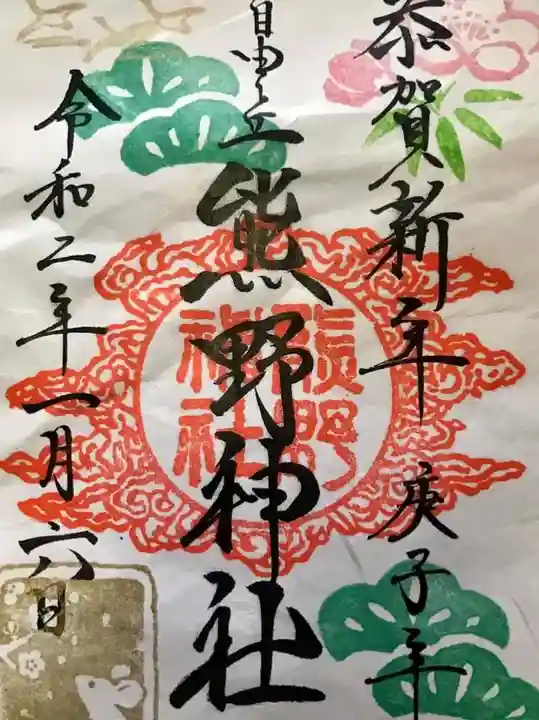 恭賀新年 庚子年
自由ヶ丘 熊野神社
令和二年一月六日
熊野
神社